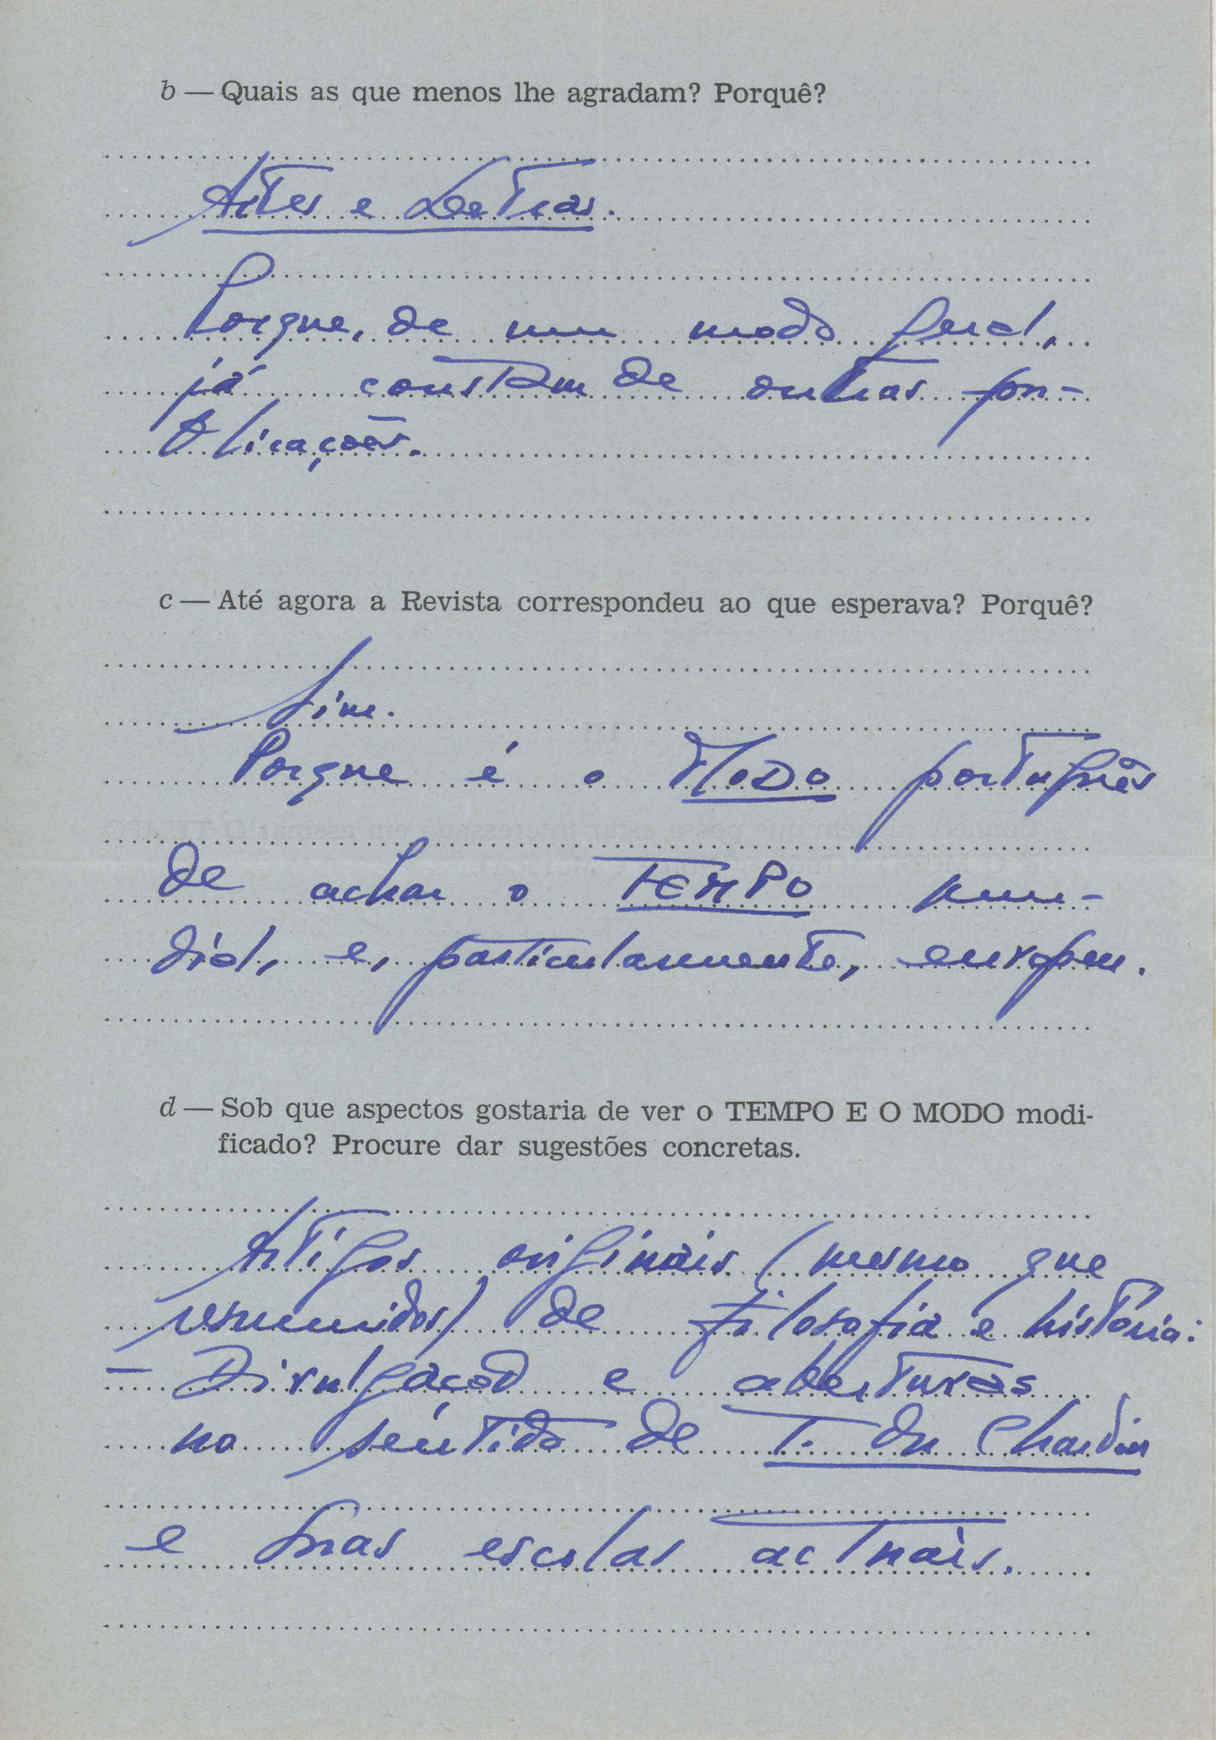 b — Quais as que menos lhe agradam? Porquê?
Artes e Letras.
Porque, de um modo geral,
já constam de outras pu-
blicações.
c — Até agora a Revista correspondeu ao que esperava? Porquê?
Sim.
Porque é o MODO português
de achar o TEMPO mun-
dial, e, particularmente, europeu.
d — Sob que aspectos gostaria de ver o TEMPO E O MODO modi-
ficado? Procure dar sugestões concretas.
Artigos originais (mesmo que
resumidos) de Filosofia e história:
— Divulgação e aberturas
no sentido de T. du Chardin
e suas escolas actuais.